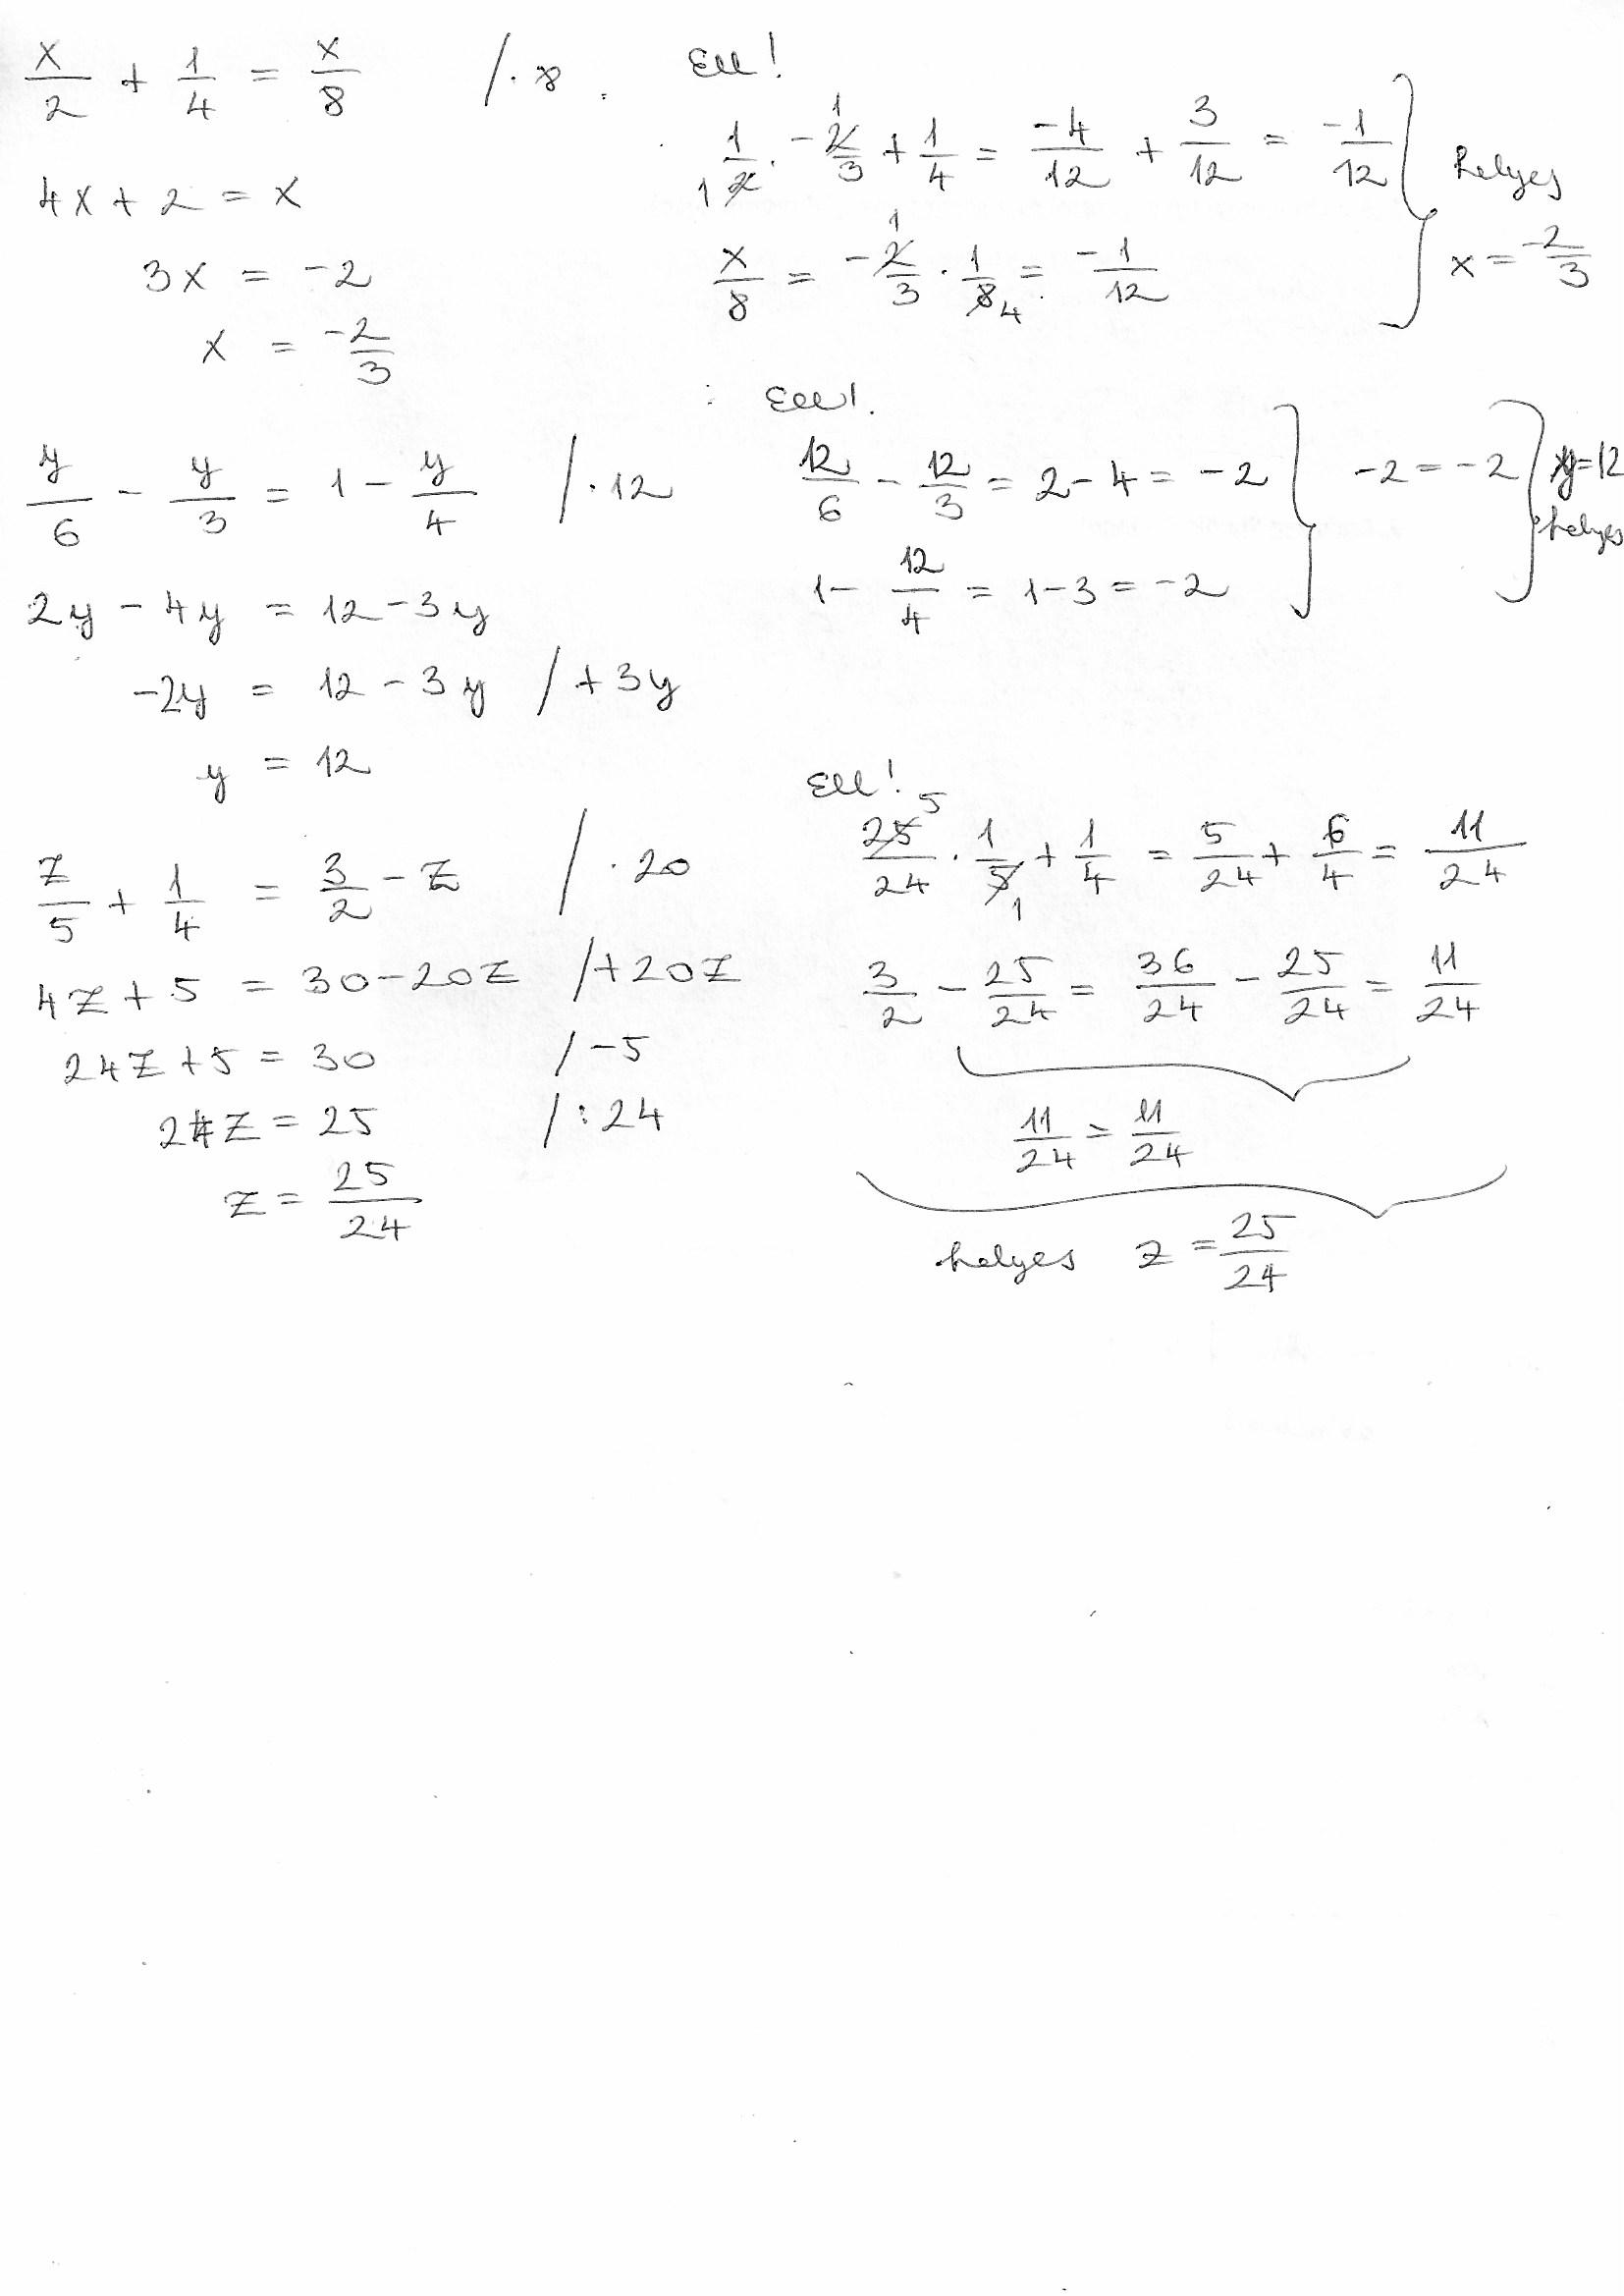 x/2 + 1/4 = x/8 /·8
4x + 2 = x
3x = -2
x = -2/3
Ell!
1/2 · -2/3 + 1/4 = -4/12 + 3/12 = -1/12
x/8 = -2/3 · 1/8 = -1/12
helyes
x = -2/3
y/6 - y/3 = 1 - y/4 /·12
2y - 4y = 12 - 3y
-2y = 12 - 3y /+3y
y = 12
Ell!
12/6 - 12/3 = 2 - 4 = -2
1 - 12/4 = 1 - 3 = -2
-2 = -2
y = 12
helyes
z/5 + 1/4 = 3/2 - z /·20
4z + 5 = 30 - 20z /+20z
24z + 5 = 30 /-5
24z = 25 /:24
z = 25/24
Ell!
25/24 · 1/5 + 1/4 = 5/24 + 6/4 = 11/24
3/2 - 25/24 = 36/24 - 25/24 = 11/24
11/24 = 11/24
helyes z = 25/24